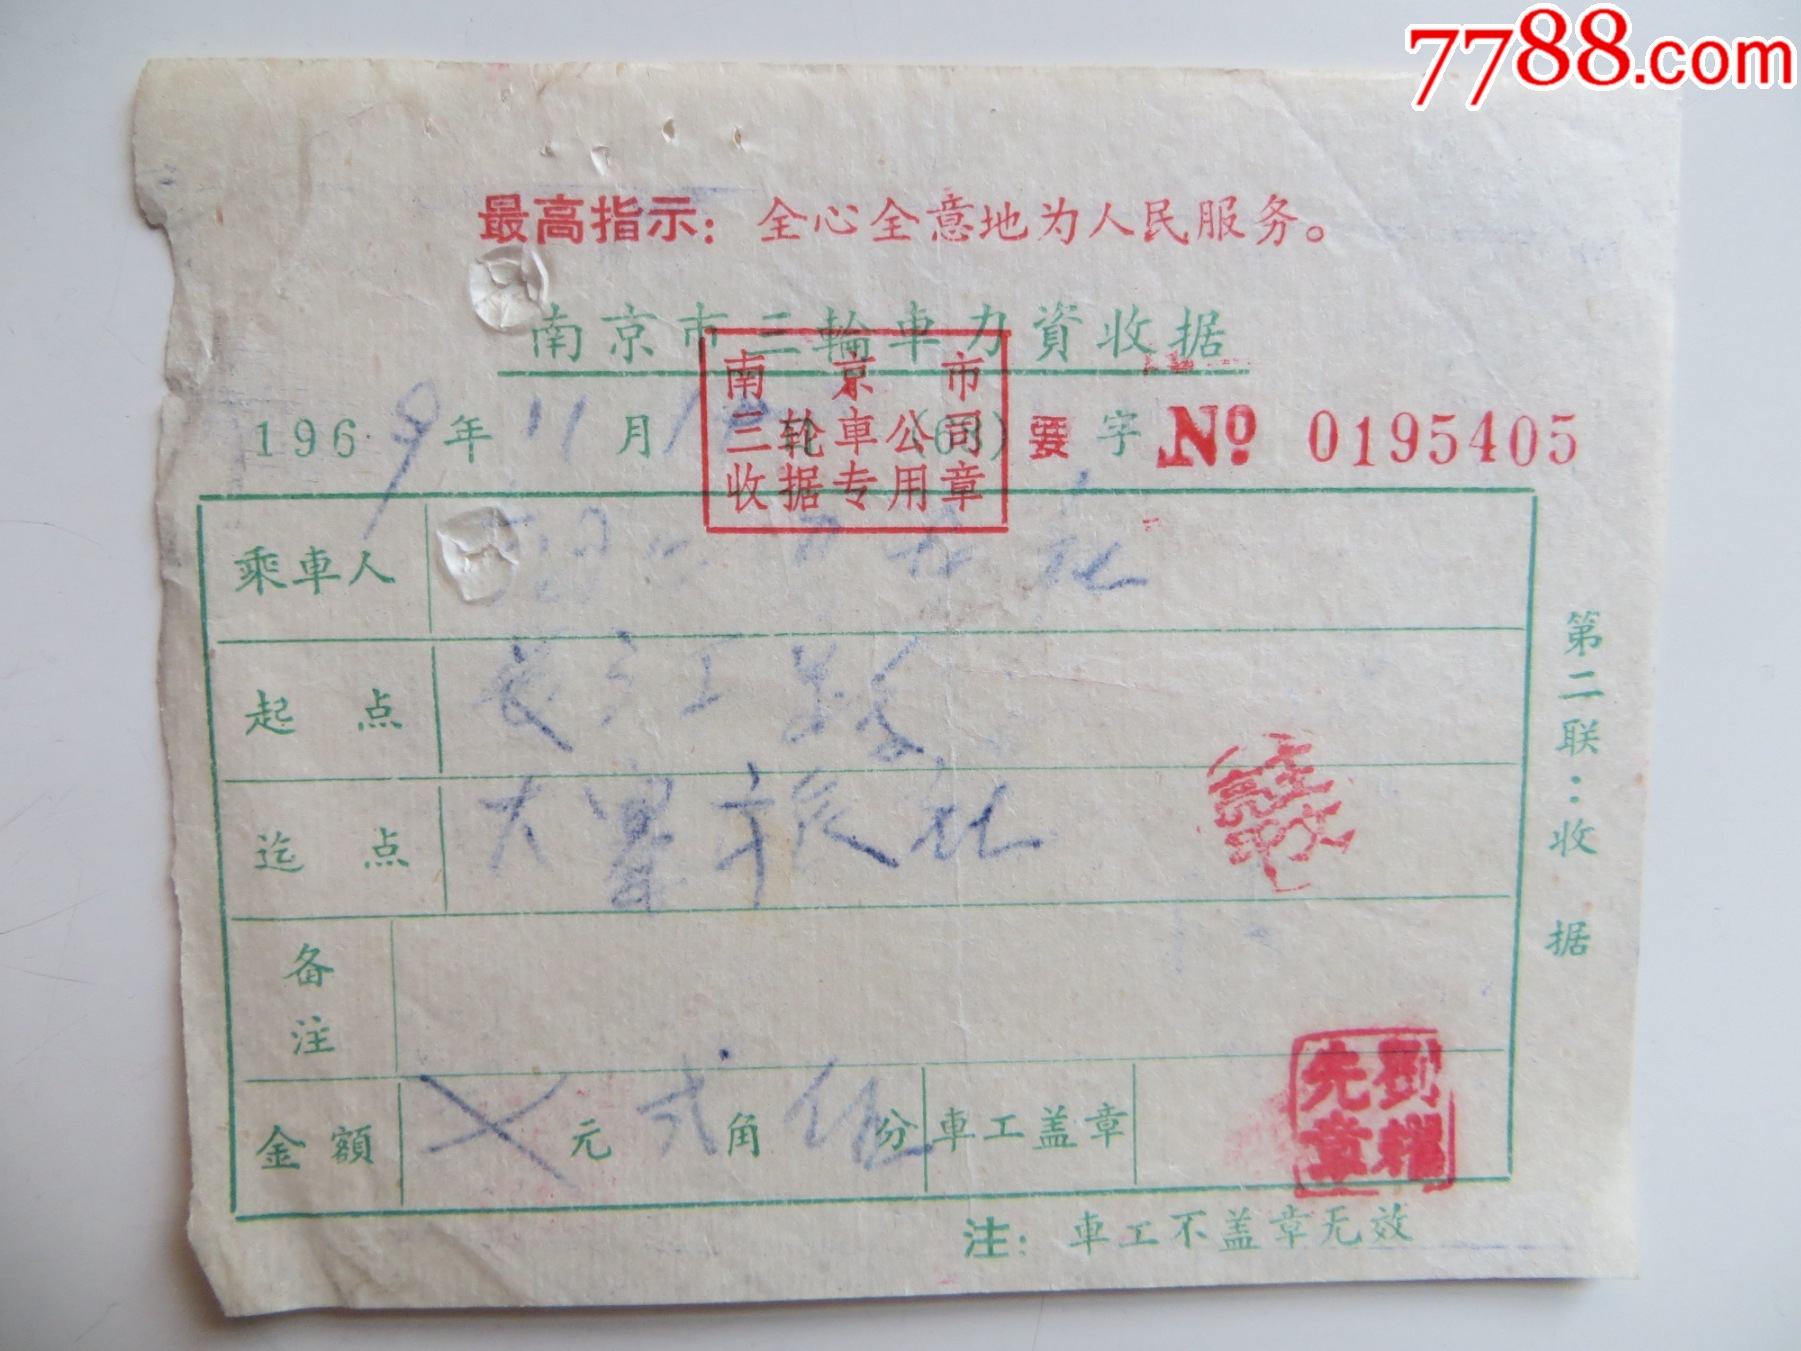 7788.com
最高指示：全心全意地为人民服务。
南京市三輪車力資收据
1969年11月1 (68) 字 № 0195405
南京市
三轮車公司
收据专用章
乘車人 社
起点 长江路
迄点 大寨旅社
备注
金額 元 弍角伍分 車工盖章
注：車工不盖章无效
第二联：收据